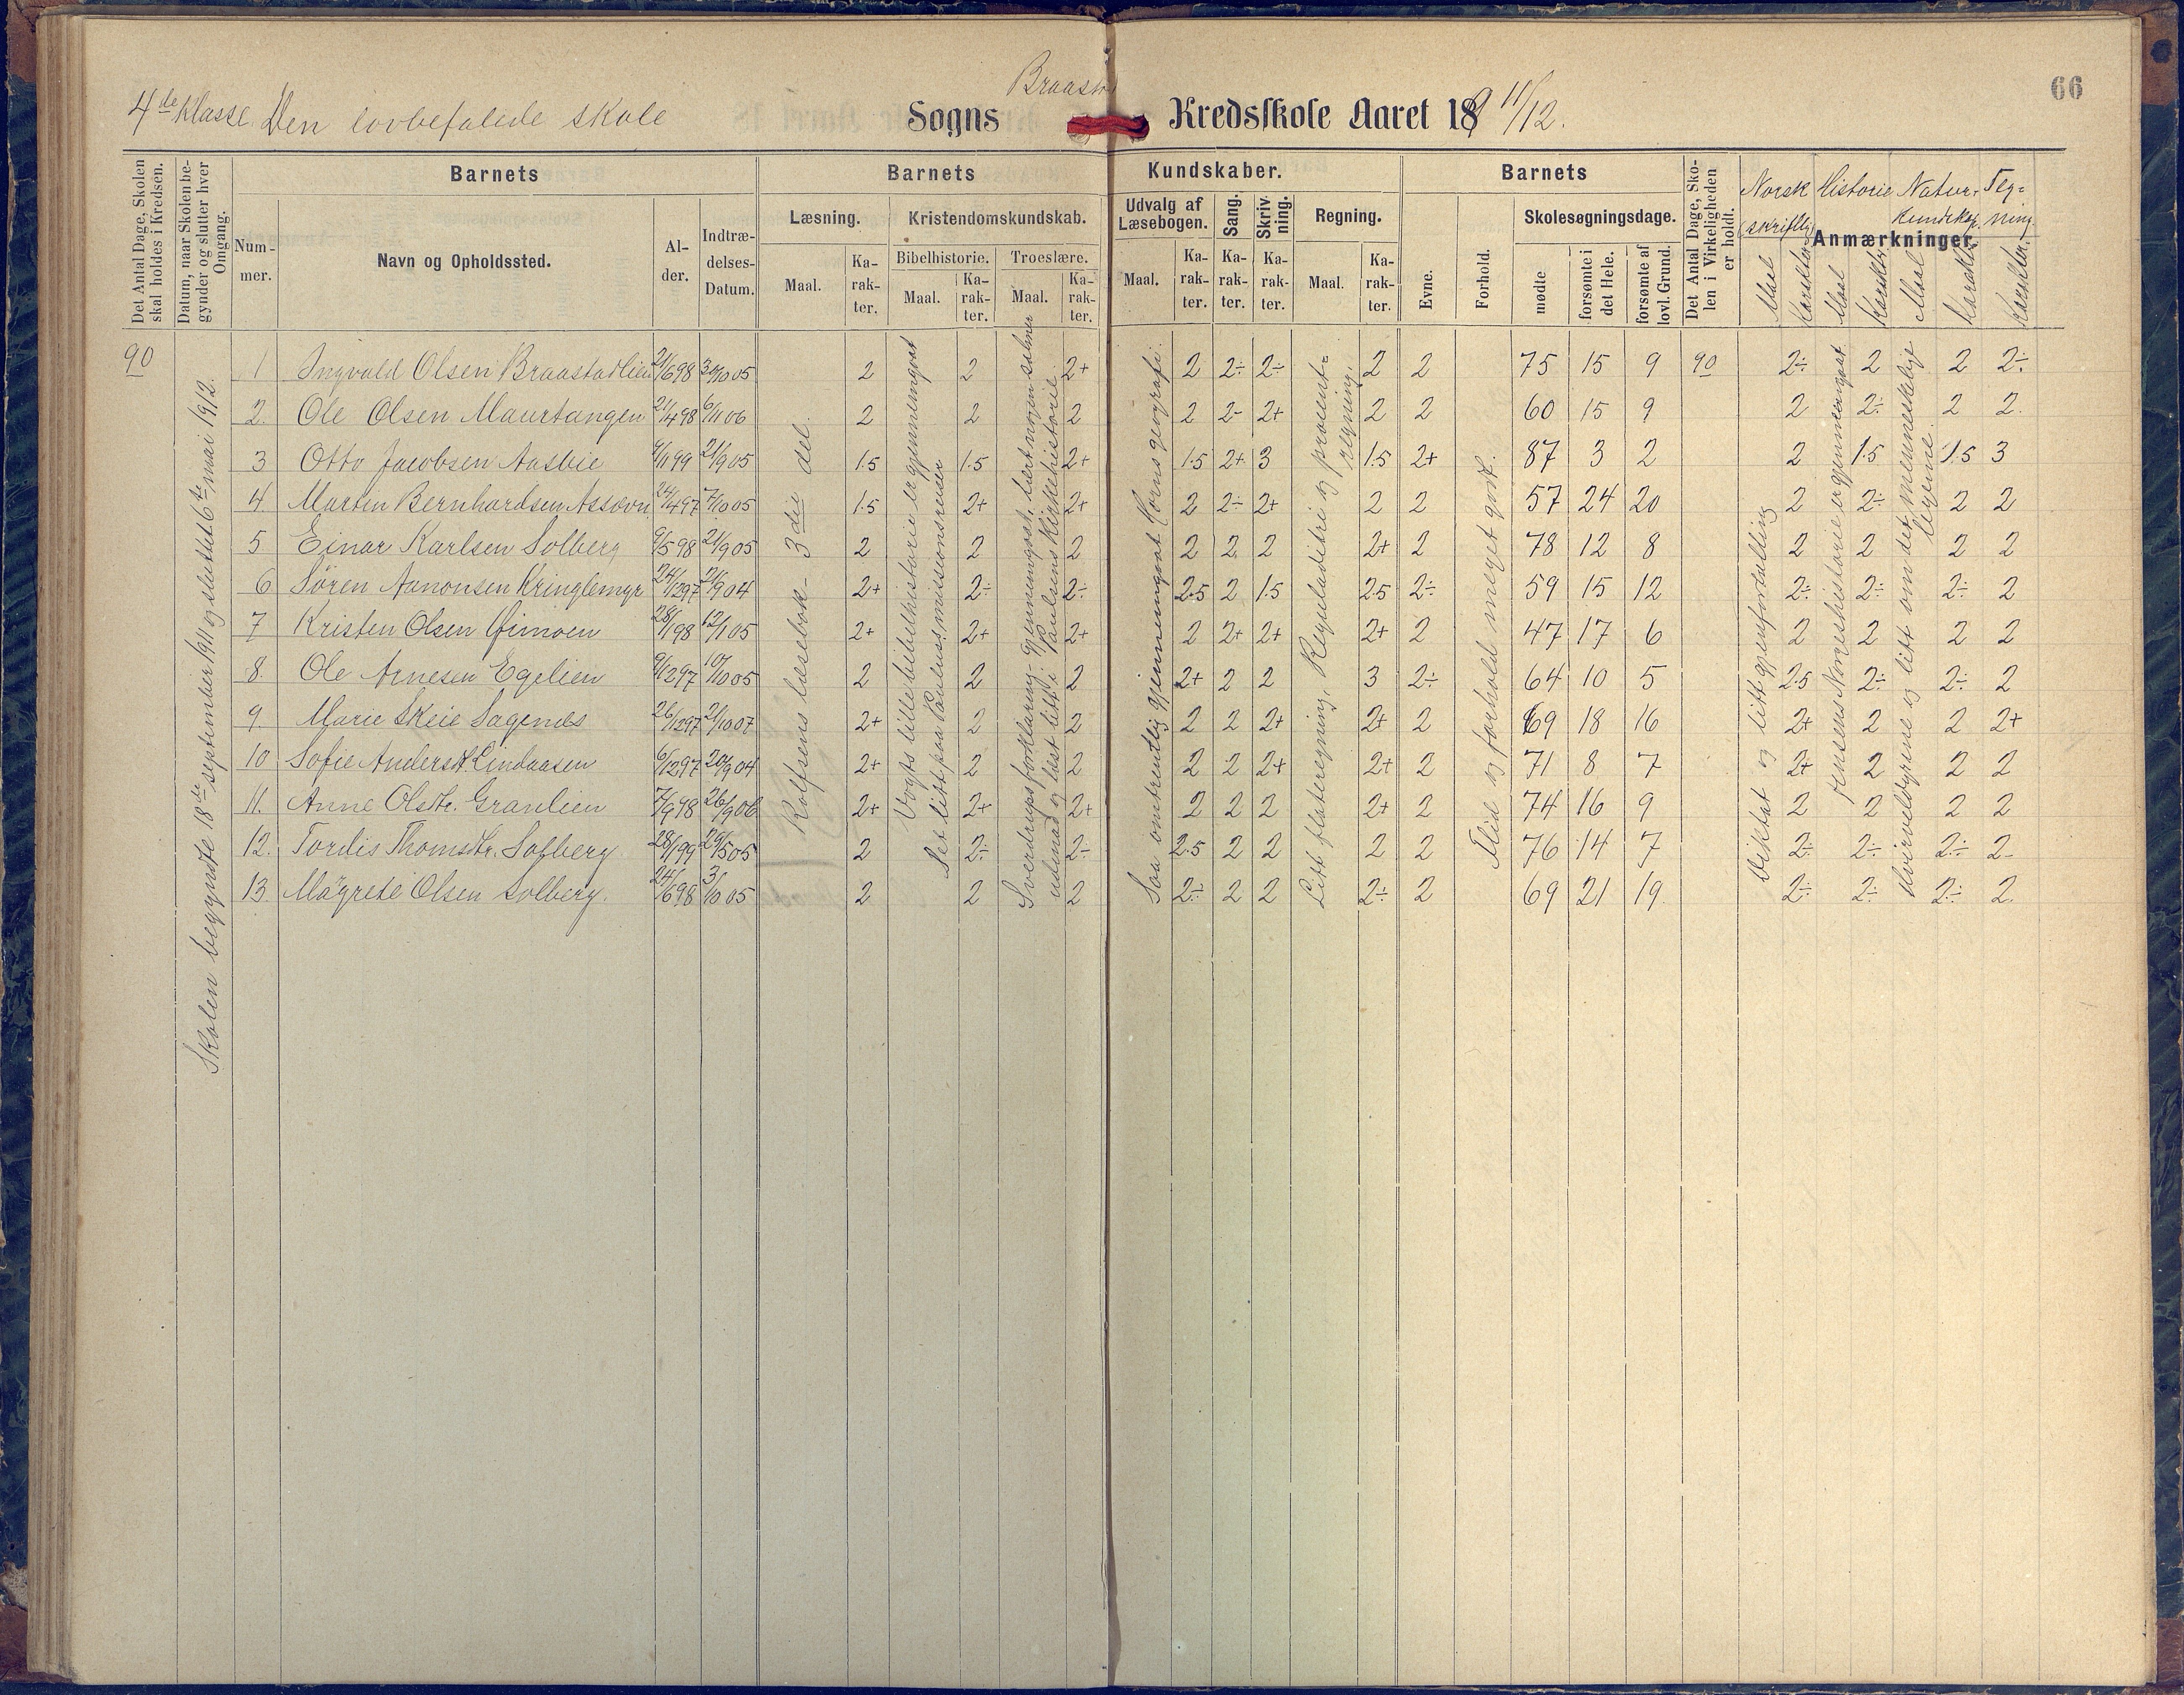 66
4de Klasse Den lovbefalede skole Sogns Braastad Kredsskole Aaret 1911/12.
Det Antal Dage, Skolen skal holdes i Kredsen.
Datum, naar Skolen begynder og slutter hver Omgang.
Barnets
Nummer.
Navn og Opholdssted.
Alder.
Indtrædelses-Datum.
Barnets Kundskaber.
Læsning.
Maal.
Karakter.
Kristendomskundskab.
Bibelhistorie.
Maal.
Karakter.
Troeslære.
Maal.
Karakter.
Udvalg af Læsebogen.
Maal.
Karakter.
Sang.
Karakter.
Skrivning.
Karakter.
Regning.
Maal.
Karakter.
Barnets
Evne.
Forhold.
Skolesøgningsdage.
mødte
forsømte i det Hele.
forsømte af lovl. Grund.
Det Antal Dage, Skolen i Virkeligheden er holdt.
Anmærkninger.
Norsk (skriftlig)
Maal
Karakter
Historie
Maal
Karakter
Naturkundskap.
Maal
Karakter
Tegning.
Karakter.
90
Skolen begyndte 18de september 1911 og sluttet 6te mai 1912.
Rolfsens læsebok 3die del.
Vogts lille bibelhistorie er gjennemgaat
Set litt paa Paulus' missionsreiser
Sverdrups forklaring gjennemgaat, lært nogen salmer
utenad og læst litt i Paulsens Kirkehistorie
Saa omtrentlig gjennemgaat Horns geografi.
Litt flateregning, Reguladetri og procent-
regning.
Flid og forhold meget godt.
Diktat og litt gjenfortælling
Jensens Norgeshistorie er gjennemgaat
Hvirveldyrene og litt om det menneskelige
legeme.
1 Ingvald Olsen Braastadlien 21/6 98 30/10 05 2 2 2+ 2 2÷ 2÷ 2 2 75 15 9 90 2÷ 2 2 2÷
2. Ole Olsen Maurtangen 21/4 98 6/11 06 2 2 2 2 2- 2+ 2 2 60 15 9 2 2÷ 2 2.
3 Otto Jacobsen Aasbie 9/1 99 21/9 05 1.5 1.5 2+ 1.5 2+ 3 1.5 2+ 87 3 2 2 1.5 1.5 3
4. Marten Bernhardsen Assævn 24/4 97 7/10 05 1.5 2+ 2+ 2 2÷ 2+ 2 2 57 24 20 2 2÷ 2 2
5 Einar Karlsen Solberg 9/5 98 21/9 05 2 2 2 2 2 2 2+ 2 78 12 8 2 2 2 2
6 Søren Aanonsen Kringlemyr 24/2 97 21/9 04 2+ 2÷ 2÷ 2.5 2 1.5 2.5 2÷ 59 15 12 2÷ 2÷ 2÷ 2
7 Kristen Olsen Øimoen 28/1 98 12/1 05 2+ 2+ 2+ 2 2+ 2+ 2+ 2 47 17 6 2 2 2 2
8. Ole Arnesen Egelien 9/12 97 10/10 05 2 2 2 2+ 2 2 3 2÷ 64 10 5 2.5 2÷ 2÷ 2
9. Marie Skeie Sagenes 26/12 97 21/10 07 2+ 2 2 2 2 2+ 2+ 2 69 18 16 2+ 2 2 2+
10 Sofie Andersdt. Lindaasen 6/12 97 20/9 04 2+ 2 2 2 2 2+ 2+ 2 71 8 7 2+ 2 2 2
11. Anne Olsdtr. Granlien 7/9 98 26/9 06 2+ 2+ 2+ 2 2 2 2+ 2 74 16 9 2 2 2 2
12. Tordis Thomsdtr. Solberg 28/1 99 29/5 05 2 2÷ 2÷ 2.5 2 2 2 2 76 14 7 2÷ 2÷ 2÷ 2-
13. Magrete Olsen Solberg. 24/6 98 3/10 05 2 2 2 2÷ 2 2 2÷ 2 69 21 19 2÷ 2÷ 2÷ 2.